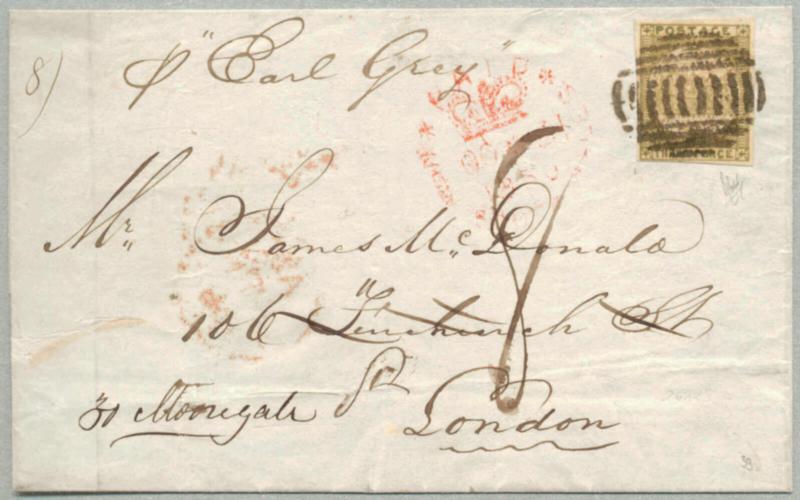 8)
p "Earl Grey"
POSTAGE
THREEPENCE
SHIP
8
Mr. James McDonald
106 Fenchurch St
30 Mooregate St
London